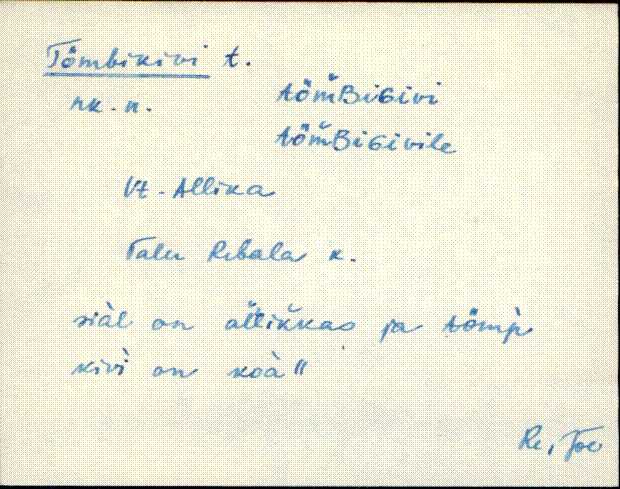 Tömbikivi t.
rk. n. töm̆Biɢivi
töm̆Biɢivile
Vt. Allika
Talu Rebala k.
siàl on al̆lik̆kas ja tömp̀
kivì on koà"
Re, Joe